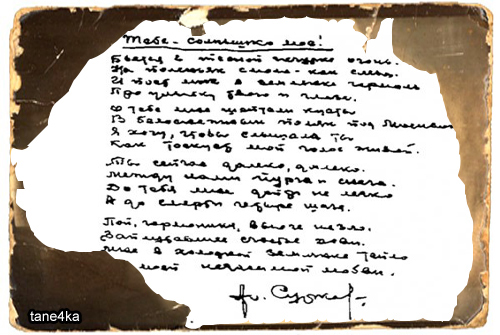 Тебе - солнышко мое!
Бьется в тесной печурке огонь.
На поленьях смола - как слеза.
И поет мне в землянке гармонь
Про улыбку твою и глаза.
О тебе мне шептали кусты
В белоснежных полях под Москвой.
Я хочу, чтобы слышала ты
Как тоскует мой голос живой.
Ты сейчас далеко, далеко.
Между нами пурга и снега.
До тебя мне дойти не легко
А до смерти четыре шага.
Пой, гармоника, вьюге назло.
Заплутавшее счастье зови.
Мне в холодной землянке тепло
моей негасимой любви.
Ал. Сурков
tane4ka